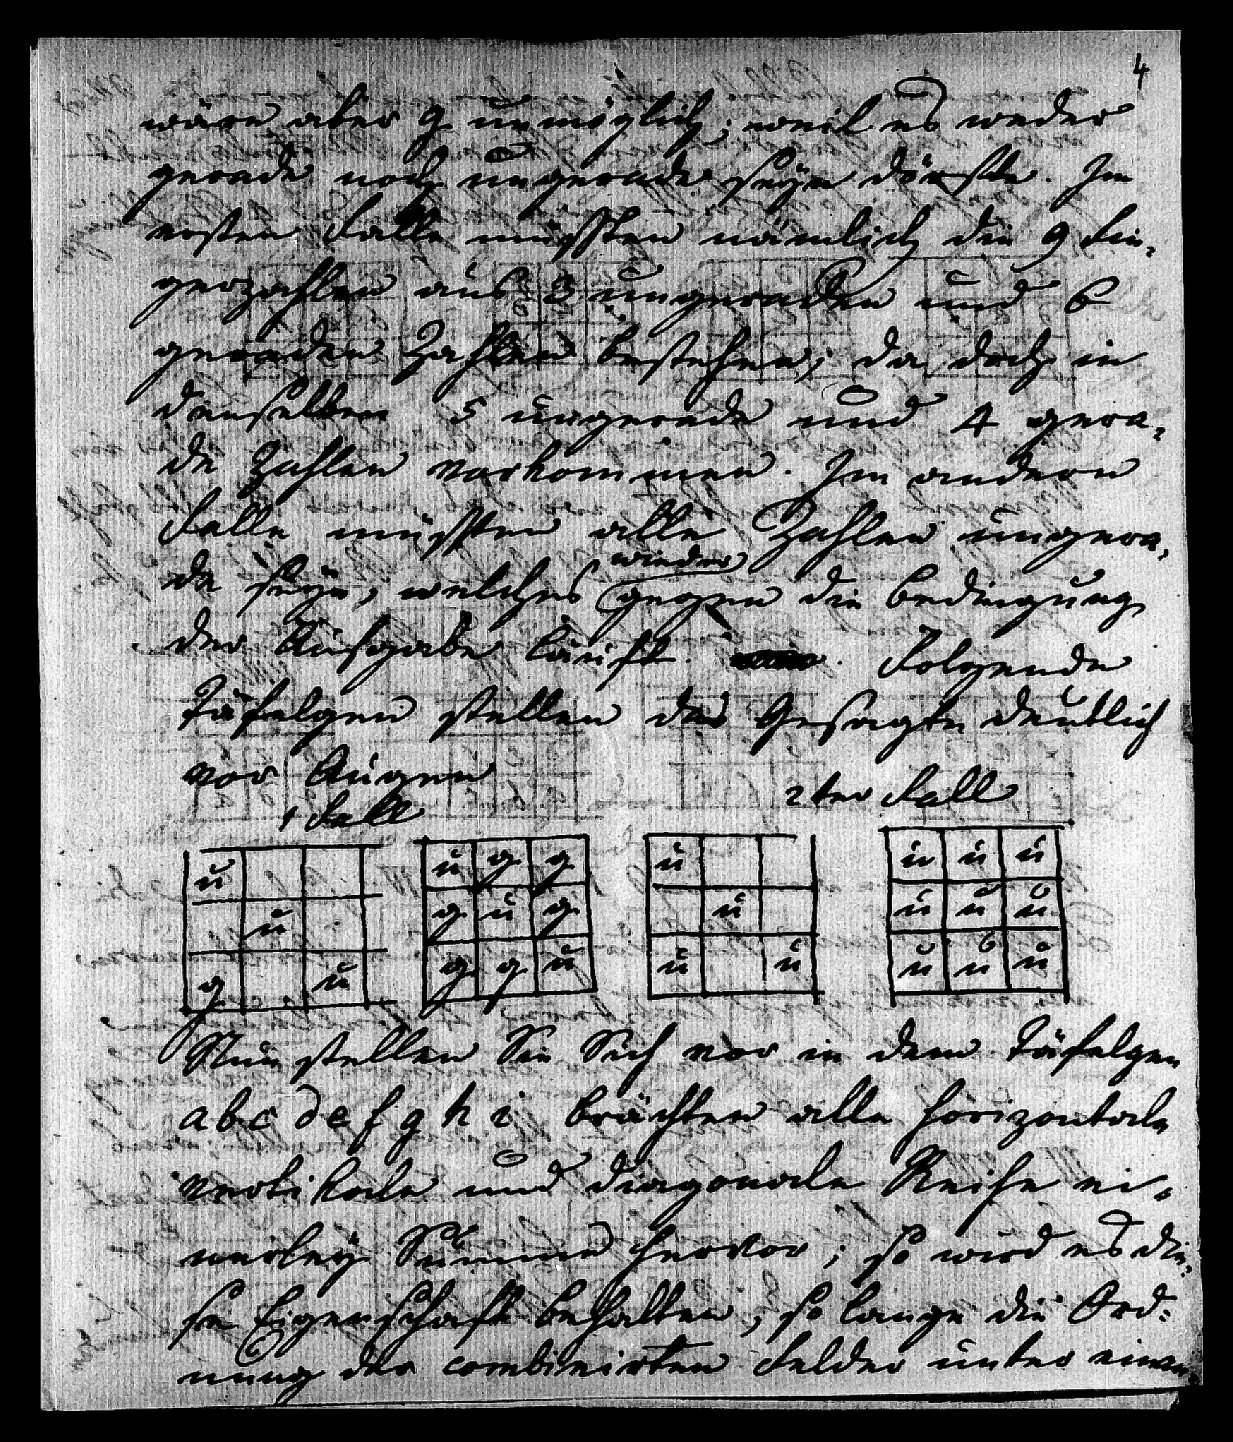 4
wäre aber g unmöglich, weil es weder
gerade noch ungerade seyn dürfte. Im
ersten Falle müssten nämlich die 9 Fin-
gerzahlen aus 3 ungeraden und 6
geraden Zahlen bestehen; da doch in
denselben 5 ungerade und 4 gera-
de Zahlen vorkommen. Im andern
Falle müssten alle Zahlen ungera-
de seyn, welches wieder gegen die Bedingung
der Aufgabe läuft. Folgende
Täfelgen stellen das Gesagte deutlich
vor Augen
1 Fall
2ter Fall
u
u
g u
u g g
g u g
g g u
u
u
u u
u u u
u u u
u u u
Nun stellen Sie Sich vor in dem Täfelgen
a b c d e f g h i brächten alle horizontale
vertikale und diagonale Reihe ei-
nerley Summe hervor; so wird es die-
se Eigenschaft behalten, so lange die Ord-
nung der combinirten Felder unter einan